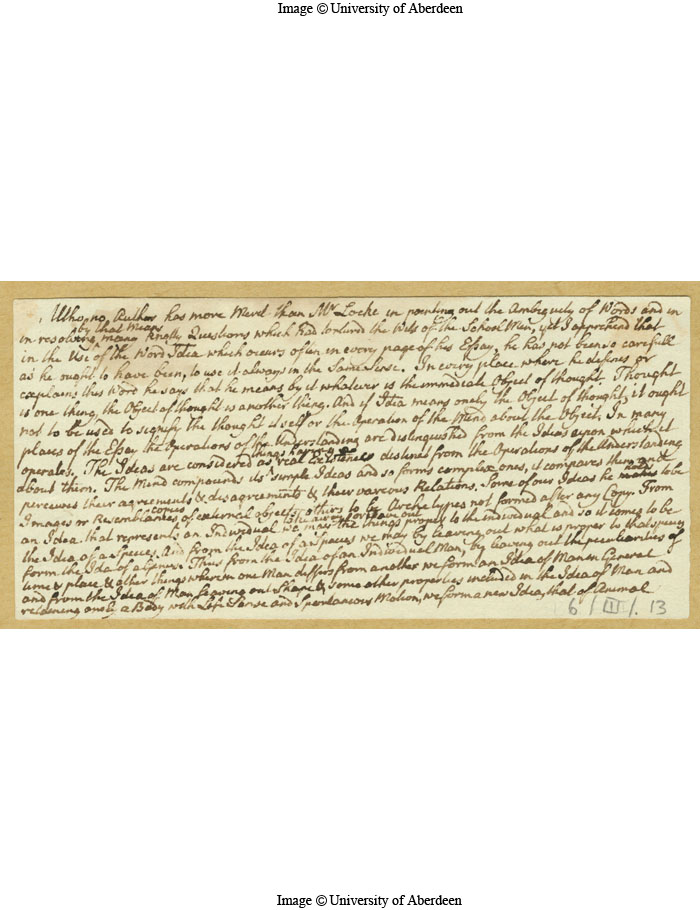 Image © University of Aberdeen
Who, no Author has more Merit than Mr Locke in pointing out the Ambiguity of Words and in
by that Means
in resolving many knotty Questions which had tortured the Wits of the School Men, yet I apprehend that
in the Use of the Word Idea which occurs often in every page of his Essay, he has not been so carefull
as he ought to have been, to use it always in the Same Sense. In every place where he defines or
explains this Word he says that he means by it whatever is the immediate Object of thought. Thought
is one thing, the Object of thought is another thing. And if Idea means onely the Object of thought, it ought
not to be used to signify the thought it self or the Operation of the Mind about the Object. In many
places of the Essay the Operations of the Understanding are distinguished from the Ideas upon which it
things having a
operates. The Ideas are considered as real Existence distinct from the Operations of the Understanding
about them. The Mind compounds its simple Ideas and so forms complex ones, it compares them and
perceives their agreements & disagreements & their various Relations. Some of our Ideas he makes to be
copies
Images or Resemblances of external objects, others to be Archetypes not formed after any Copy. From
an Idea that represents an Individual we may leave out the things proper to the individual and so it comes to be
the Idea of a Species. And from the Idea of a Species we may by leaving out what is proper to that species
form the Idea of a Genus. Thus from the Idea of an Individual Man, by leaving out the peculiarities of
time & place & other things wherein one Man differs from another we form an Idea of Man in General
and from the Idea of Man, leaving out Shape & some other properties included in the Idea of Man and
retaining onely a Body with Life Sense and Spontaneous Motion, we form a new Idea, that of Animal
6/III/. 13
Image © University of Aberdeen